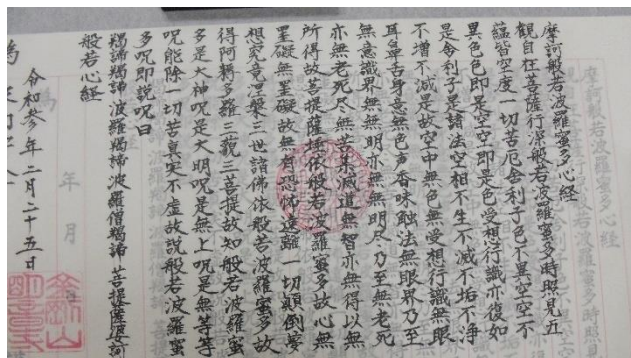 摩訶般若波羅蜜多心経
摩訶般若波羅蜜多心経
観自在菩薩行深般若波羅蜜多時照見五
蘊皆空度一切苦厄舎利子色不異空空不
異色色即是空空即是色受想行識亦復如
是舎利子是諸法空相不生不滅不垢不浄
不増不減是故空中無色無受想行識無眼
耳鼻舌身意無色声香味触法無眼界乃至
無意識界無無明亦無無明尽乃至無老死
亦無老死尽無苦集滅道無智亦無得以無
所得故菩提薩埵依般若波羅蜜多故心無
罣礙無罣礙故無有恐怖遠離一切顛倒夢
想究竟涅槃三世諸佛依般若波羅蜜多故
得阿耨多羅三藐三菩提故知般若波羅蜜
多是大神呪是大明呪是無上呪是無等等
呪能除一切苦真実不虚故説般若波羅蜜
多呪即説呪曰
羯諦羯諦 波羅羯諦 波羅僧羯諦 菩提薩婆訶
般若心経
年 月
令和参年二月二十五日
為